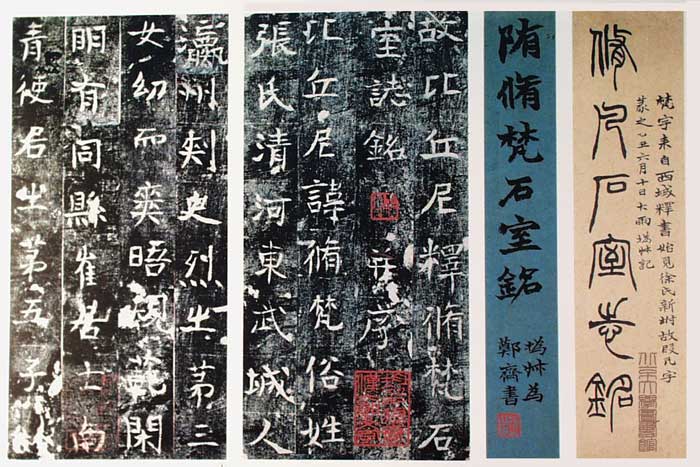 梵字来自西域釋書始見徐氏新坿故叚凡字
篆之乙丑六月十日大雨撝尗記
脩凡石室志銘
隋脩梵石室銘
撝尗為
鄭齋書
故比丘尼釋脩梵石
室誌銘 并序
比丘尼諱脩梵俗姓
張氏清河東武城人
瀛州刾史烈之第三
女幼而爽晤規範閑
明有同縣崔居士南
青使君之第五子